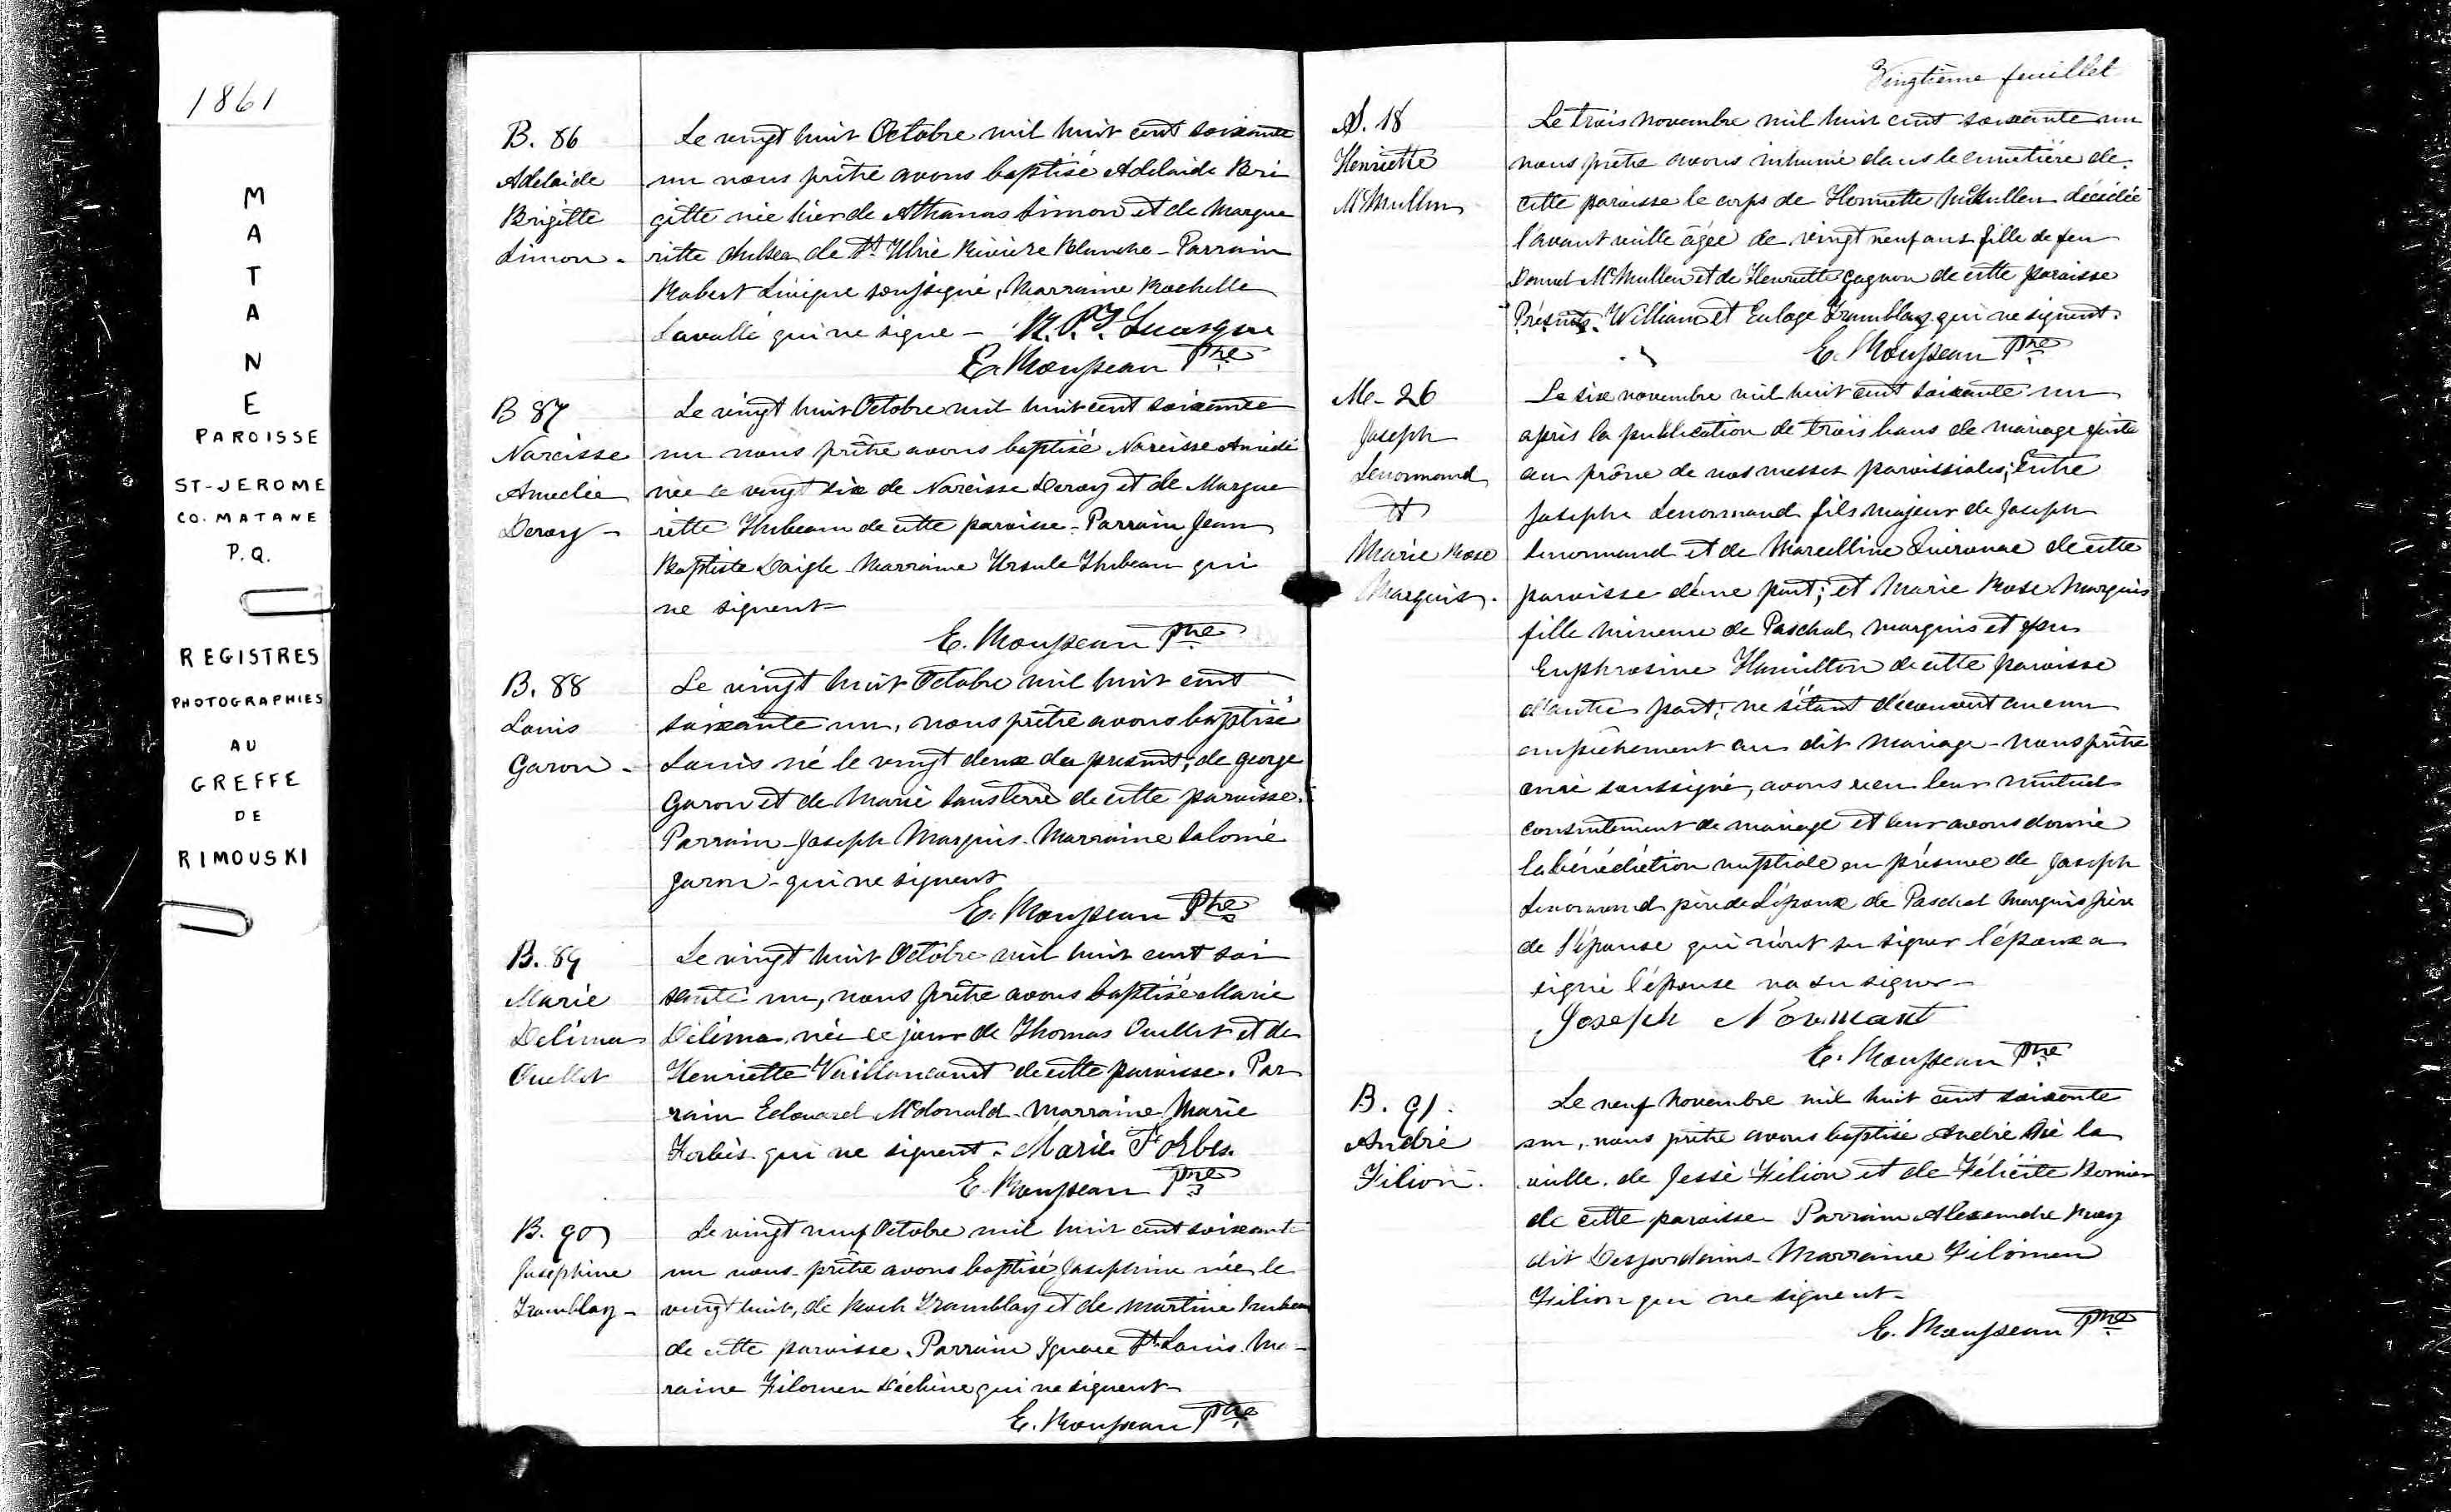 1861
M
A
T
A
N
E
PAROISSE
ST-JEROME
CO. MATANE
P.Q.
REGISTRES
PHOTOGRAPHIES
AU
GREFFE
DE
RIMOUSKI
B. 86
Adelaide
Brigitte
Simon -
Le vingt huit Octobre mil huit cent soixante
un nous prêtre avons baptisé Adelaide Bri
gitte née hier de Athanas Simon et de Margue
ritte de St Ulric Rivière Blanche - Parrain
Robert soussigné, Marraine Rachelle
Lavallé qui ne signe -
E. Mousseau Ptre
B 87
Narcisse
Amedée
Deroy -
Le vingt huit Octobre mil huit cent soixante
un nous prêtre avons baptisé Narcisse Amédé
née le vingt six de Narcisse Deroy et de Margue
ritte de cette paroisse - Parrain Jean
Baptiste Daigle Marraine Ursule qui
ne signent
E. Mousseau Ptre
B. 88
Louis
Garon -
Le vingt huit Octobre mil huit cent
soixante un, nous prêtre avons baptisé
Louis né le vingt deux du présent, de George
Garon et de Marie de cette paroisse.
Parrain Joseph Marquis. Marraine Salomé
Garon - qui ne signent
E. Mousseau Ptre
B. 89
Marie
Delima
Ouellet
Le vingt huit Octobre mil huit cent soi
xante un, nous prêtre avons baptisé Marie
Délima née ce jour de Thomas Ouellet et de
Henriette Vaillancourt de cette paroisse. Par
rain Edouard McDonald. Marraine Marie
Forbes qui ne signent. Marie Forbes.
E. Mousseau Ptre
B. 90
Josephine
Tramblay -
Le vingt neuf Octobre mil huit cent soixante
un nous prêtre avons baptisé Josephine née le
vingt huit, de Roch Tramblay et de Martine
de cette paroisse. Parrain Ignace St Louis. Ma-
raine Filomen qui ne signent
E. Mousseau Ptre
Vingtième feuillet
S. 18
Henriette
McMullen
Le trois novembre mil huit cent soixante un
nous prêtre avons inhumé dans le cimetière de
cette paroisse le corps de Henriette McMullen décédée
l'avant veille âgée de vingt neuf ans fille de feu
McMullen et de Henriette Gagnon de cette paroisse
Présents William et Euloge Tramblay qui ne signent.
E. Mousseau Ptre
M- 26
Joseph
Lenormand
et
Marie Rose
Marquis.
Le six novembre mil huit cent soixante un
après la publication de trois bans de mariage faite
au prône de nos messes paroissiales; Entre
Joseph Lenormand fils majeur de Joseph
Lenormand et de Marcelline de cette
paroisse d'une part; et Marie Rose Marquis
fille mineure de Paschal Marquis et feu
Euphrosine Hamilton de cette paroisse
d'autre part; ne s'étant découvert aucun
empêchement au dit mariage - nous prêtre
curé soussigné, avons reçu leur mutuel
consentement de mariage et leur avons donné
la bénédiction nuptiale en présence de Joseph
Lenormand père de l'époux de Paschal Marquis père
de l'épouse qui n'ont su signer l'époux a
signé l'épouse na su signer -
Joseph Normant
E. Mousseau Ptre
B. 91.
André
Filion.
Le neuf Novembre mil huit cent soixante
un, nous prêtre avons baptisé André né la
veille. de Jessé Filion et de Félicité
de cette paroisse - Parrain Alexandre Roy
dit Desjardains - Marraine Filomen
Filion qui ne signent -
E. Mousseau Ptre